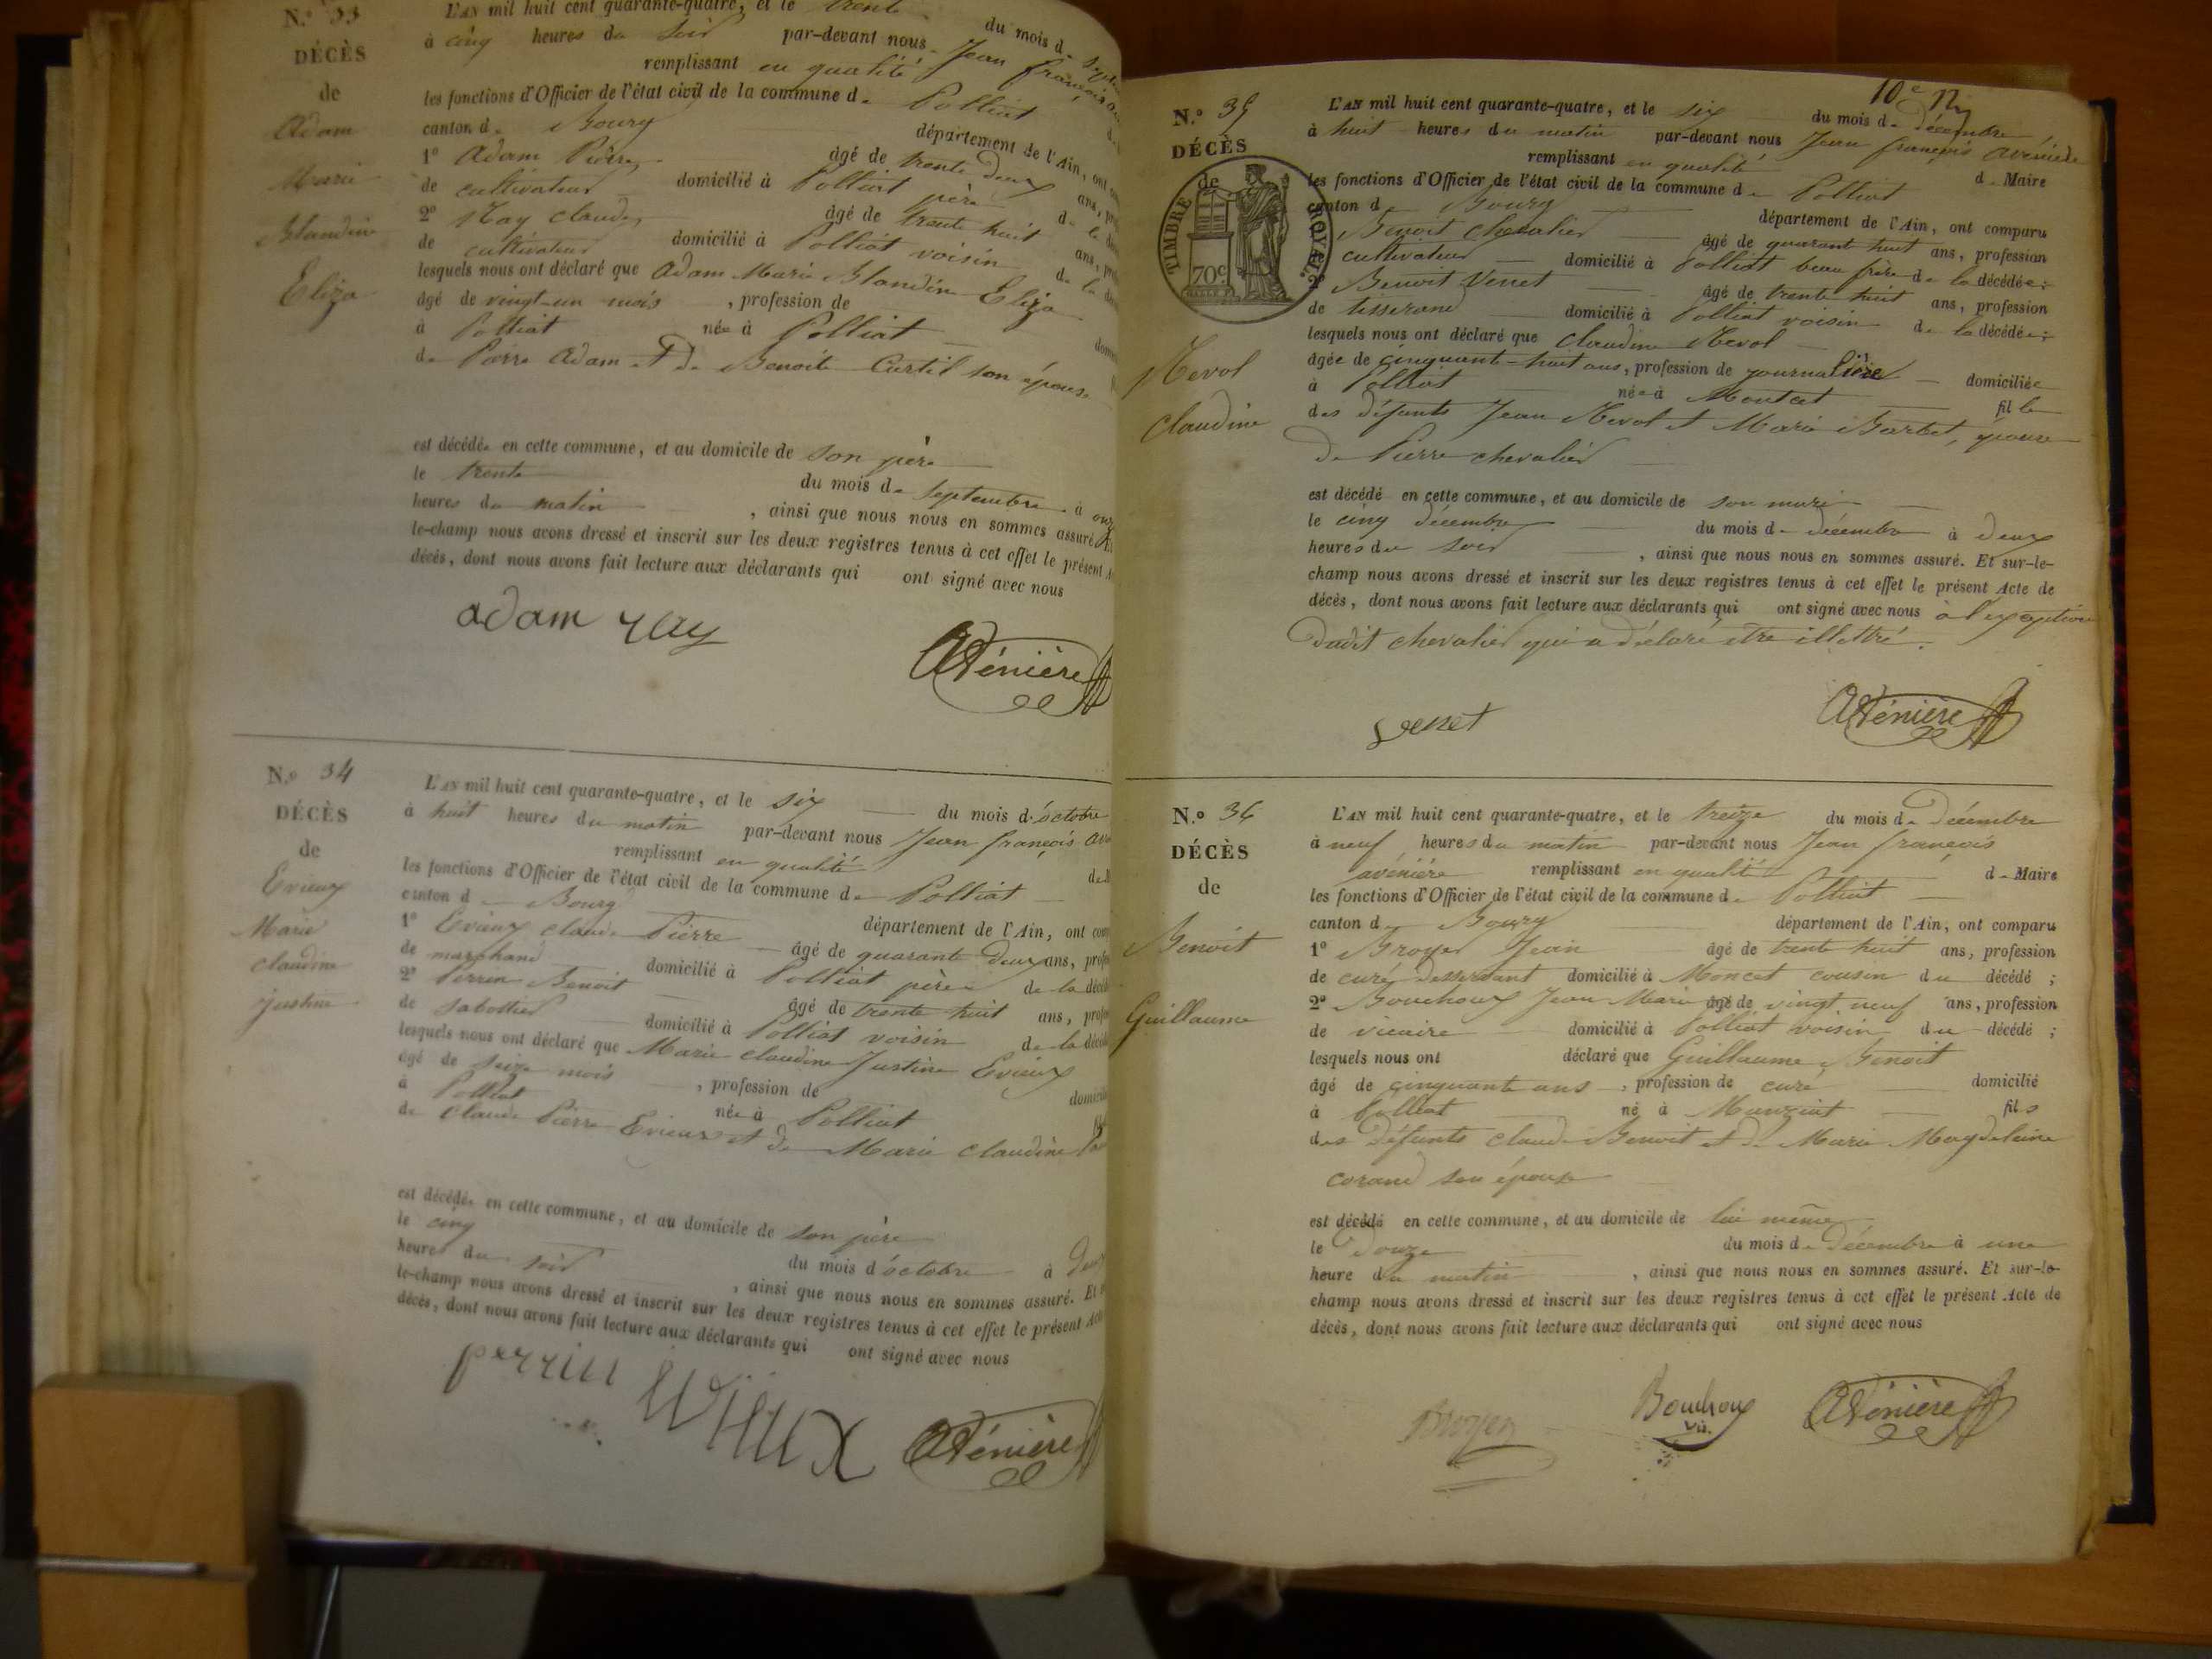 N.º 33
DÉCÈS
de
Adam
Marie
Blandine
Eliza
L'AN mil huit cent quarante-quatre, et le trente du mois d
à cinq heures du soir par-devant nous Jean François
remplissant en qualité
les fonctions d'Officier de l'état civil de la commune de Polliat
canton d Bourg département de l'Ain, ont
1º Adam Pierre âgé de trente deux ans,
de cultivateur domicilié à Polliat père de la
2º Ray Claude âgé de trente huit ans,
de cultivateur domicilié à Polliat voisin de la
lesquels nous ont déclaré que Adam Marie Blandine Eliza
âgé de vingt-un mois , profession de
à Polliat née à Polliat
de Pierre Adam et de Benoite Curtil son épouse
est décédée en cette commune, et au domicile de son père
le trente du mois de septembre à
heures du matin , ainsi que nous nous en sommes assuré.
le-champ nous avons dressé et inscrit sur les deux registres tenus à cet effet le présent
décès, dont nous avons fait lecture aux déclarants qui ont signé avec nous
adam ray Avénière
N.º 34
DÉCÈS
de
Evieux
Marie
claudine
justine
L'AN mil huit cent quarante-quatre, et le six du mois d'octobre
à huit heures du matin par-devant nous Jean françois
remplissant en qualité
les fonctions d'Officier de l'état civil de la commune de Polliat
canton d Bourg département de l'Ain, ont
1º Evieux claude Pierre âgé de quarante deux ans,
de marchand domicilié à Polliat père de la
2º Perrin Benoit âgé de trente huit ans,
de sabottier domicilié à Polliat voisin de la
lesquels nous ont déclaré que Marie claudine Justine Evieux
âgé de seize mois , profession de
à Polliat née à Polliat
de claude Pierre Evieux et de Marie claudine
est décédée en cette commune, et au domicile de son père
le cinq du mois d'octobre à deux
heures du soir , ainsi que nous nous en sommes assuré. Et
le-champ nous avons dressé et inscrit sur les deux registres tenus à cet effet le présent
décès, dont nous avons fait lecture aux déclarants qui ont signé avec nous
perrin Evieux Avénière
10e
N.º 35
DÉCÈS
de
TIMBRE ROYAL.
70c
Nevol
claudine
L'AN mil huit cent quarante-quatre, et le six du mois de décembre
à huit heures du matin par-devant nous Jean françois avénière
remplissant en qualité de Maire
les fonctions d'Officier de l'état civil de la commune de Polliat
canton d Bourg département de l'Ain, ont comparu
Benoit chevalier âgé de quarant huit ans, profession
cultivateur domicilié à Polliat beau frère de la décédée;
2º Benoit Venet âgé de trente huit ans, profession
de tisserand domicilié à Polliat voisin de la décédée;
lesquels nous ont déclaré que claudine Nevol
âgée de cinquante-huit ans, profession de journalière domiciliée
à Polliat née à Montcet fille
des défunts Jean Nevol et Marie Barbet, épouse
de Pierre chevalier
est décédé en cette commune, et au domicile de son mari
le cinq décembre du mois de décembre à deux
heures du soir , ainsi que nous nous en sommes assuré. Et sur-le-
champ nous avons dressé et inscrit sur les deux registres tenus à cet effet le présent Acte de
décès, dont nous avons fait lecture aux déclarants qui ont signé avec nous à l'exception
dudit chevalier qui a déclaré être illettré.
venet Avénière
N.º 36
DÉCÈS
de
Benoit
Guillaume
L'AN mil huit cent quarante-quatre, et le treize du mois de décembre
à neuf heures du matin par-devant nous Jean françois
avénière remplissant en qualité de Maire
les fonctions d'Officier de l'état civil de la commune de Polliat
canton d Bourg département de l'Ain, ont comparu
1º Broyer Jean âgé de trente huit ans, profession
de curé desservant domicilié à Moncet cousin du décédé ;
2º Bouchoux Jean Marie âgé de vingt neuf ans, profession
de vicaire domicilié à Polliat voisin du décédé ;
lesquels nous ont déclaré que Guillaume Benoit
âgé de cinquante ans , profession de curé domicilié
à Polliat né à Manziat fils
des défunts claude Benoit et de Marie Magdeleine
corand son épouse
est décédé en cette commune, et au domicile de lui même
le douze du mois de décembre à une
heure du matin , ainsi que nous nous en sommes assuré. Et sur-le-
champ nous avons dressé et inscrit sur les deux registres tenus à cet effet le présent Acte de
décès, dont nous avons fait lecture aux déclarants qui ont signé avec nous
Broyer Bouchoux vic. Avénière